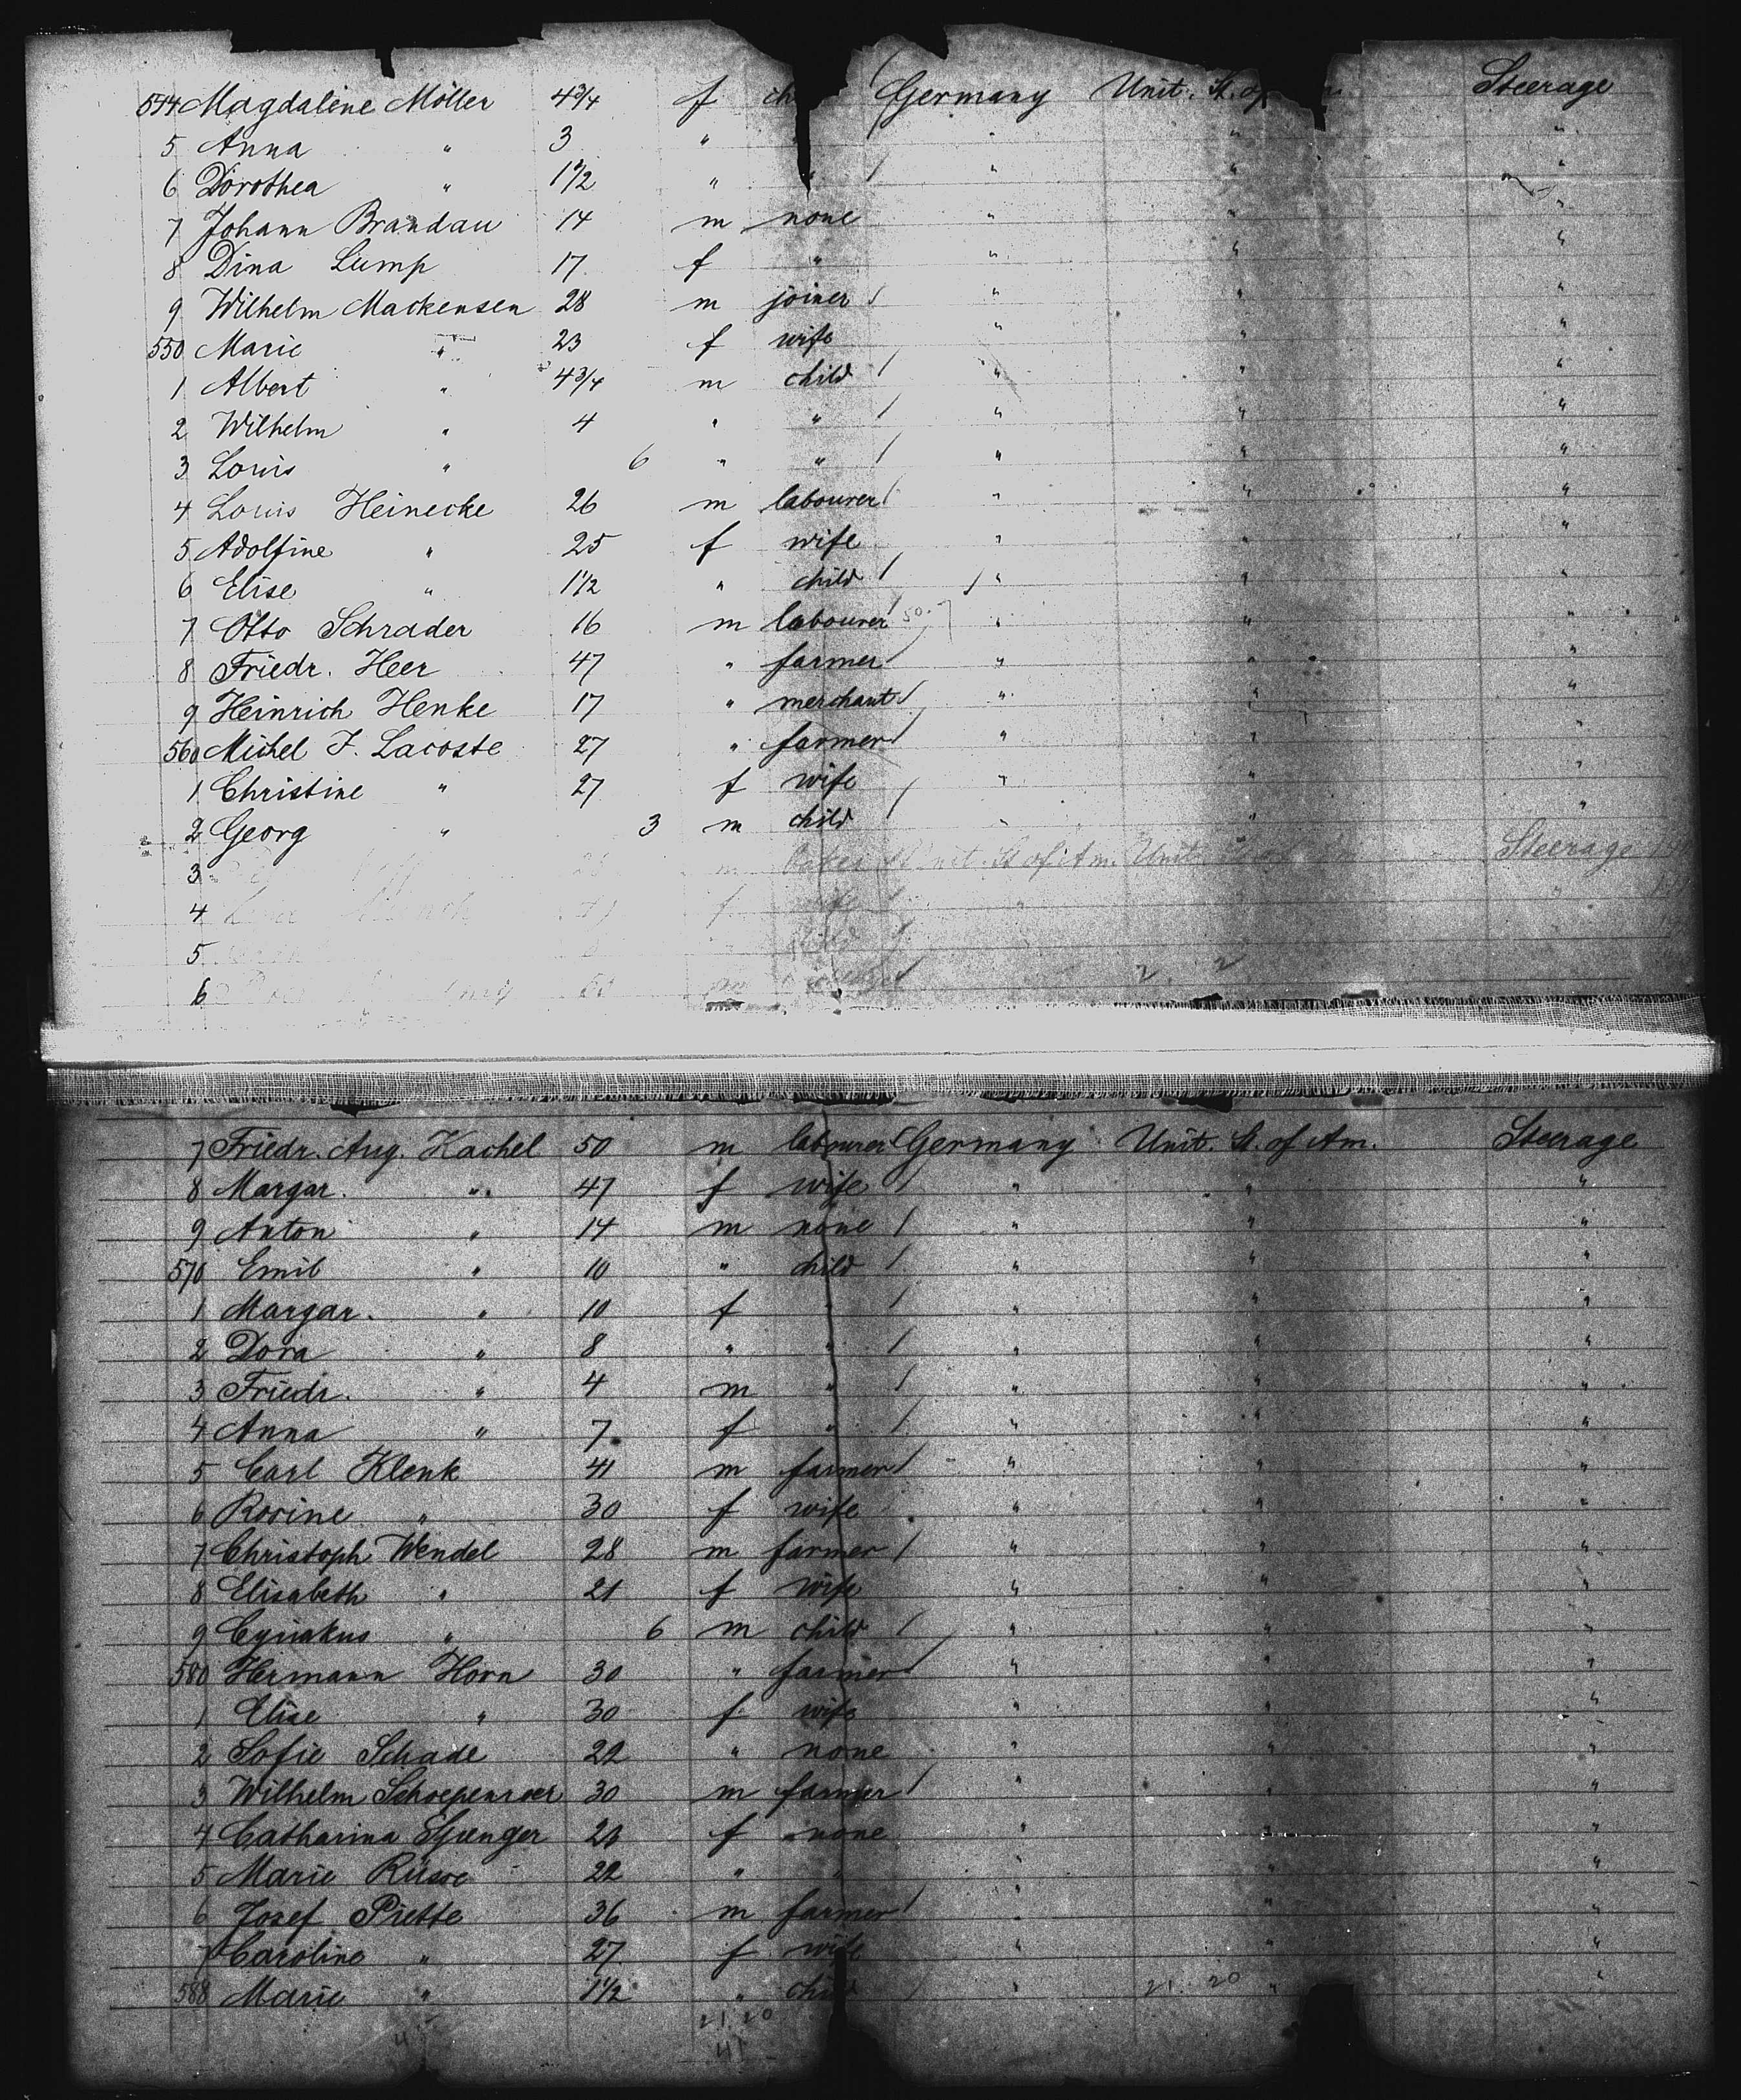 544 Magdalene Möller 4 3/4 f Germany Unit. St. of Steerage
5 Anna " 3 " " " "
6 Dorothea " 1 1/2 " " / " " "
7 Johann Brandau 14 m none " " "
8 Dina Lump 17 f " " " "
9 Wilhelm Mackensen 28 m joiner / " " "
550 Marie " 23 f wife " " "
1 Albert " 4 3/4 m child / " " "
2 Wilhelm " 4 " " / " " "
3 Louis " 6 " " / " " "
4 Louis Heinecke 26 m labourer / " " "
5 Adolfine " 25 f wife " " "
6 Elise " 1 1/2 " child / " " "
7 Otto Schrader 16 m labourer / 50 " " "
8 Friedr. Heer 47 " farmer / " " "
9 Heinrich Henke 17 " merchant / " " "
560 Michel F. Lacoste 27 " farmer / " " "
1 Christine " 27 f wife " " "
2 Georg " 3 m child / " " "
3 m Unit. St of Am. Unit. Steerage
4 f wife / " "
5 child
6 m 2. 2
7 Friedr. Aug. Kachel 50 m labourer / Germany Unit. St. of Am. Steerage
8 Margar. " 47 f wife / " " "
9 Anton " 14 m none / " " "
570 Emil " 10 " child / " " "
1 Margar. " 10 f " / " " "
2 Dora " 8 " " / " " "
3 Friedr. " 4 m " / " " "
4 Anna " 7 f " / " " "
5 Carl Klenk 41 m farmer / " " "
6 Rosine " 30 f wife " " "
7 Christoph Wendel 28 m farmer / " " "
8 Elisabeth " 21 f wife " " "
9 Cyriakus " 6 m child / " " "
580 Hermann Horn 30 " farmer / " " "
1 Elise " 30 f wife " " "
2 Sofie Schade 22 " none " " "
3 Wilhelm 30 m farmer / " " "
4 Catharina f none " " "
5 Marie 22 " " " " "
6 Josef Piette 36 m farmer / " " "
7 Caroline " 27 f wife " " "
588 Marie " 1 1/2 " child / " 21. 20 " "
21. 20
41